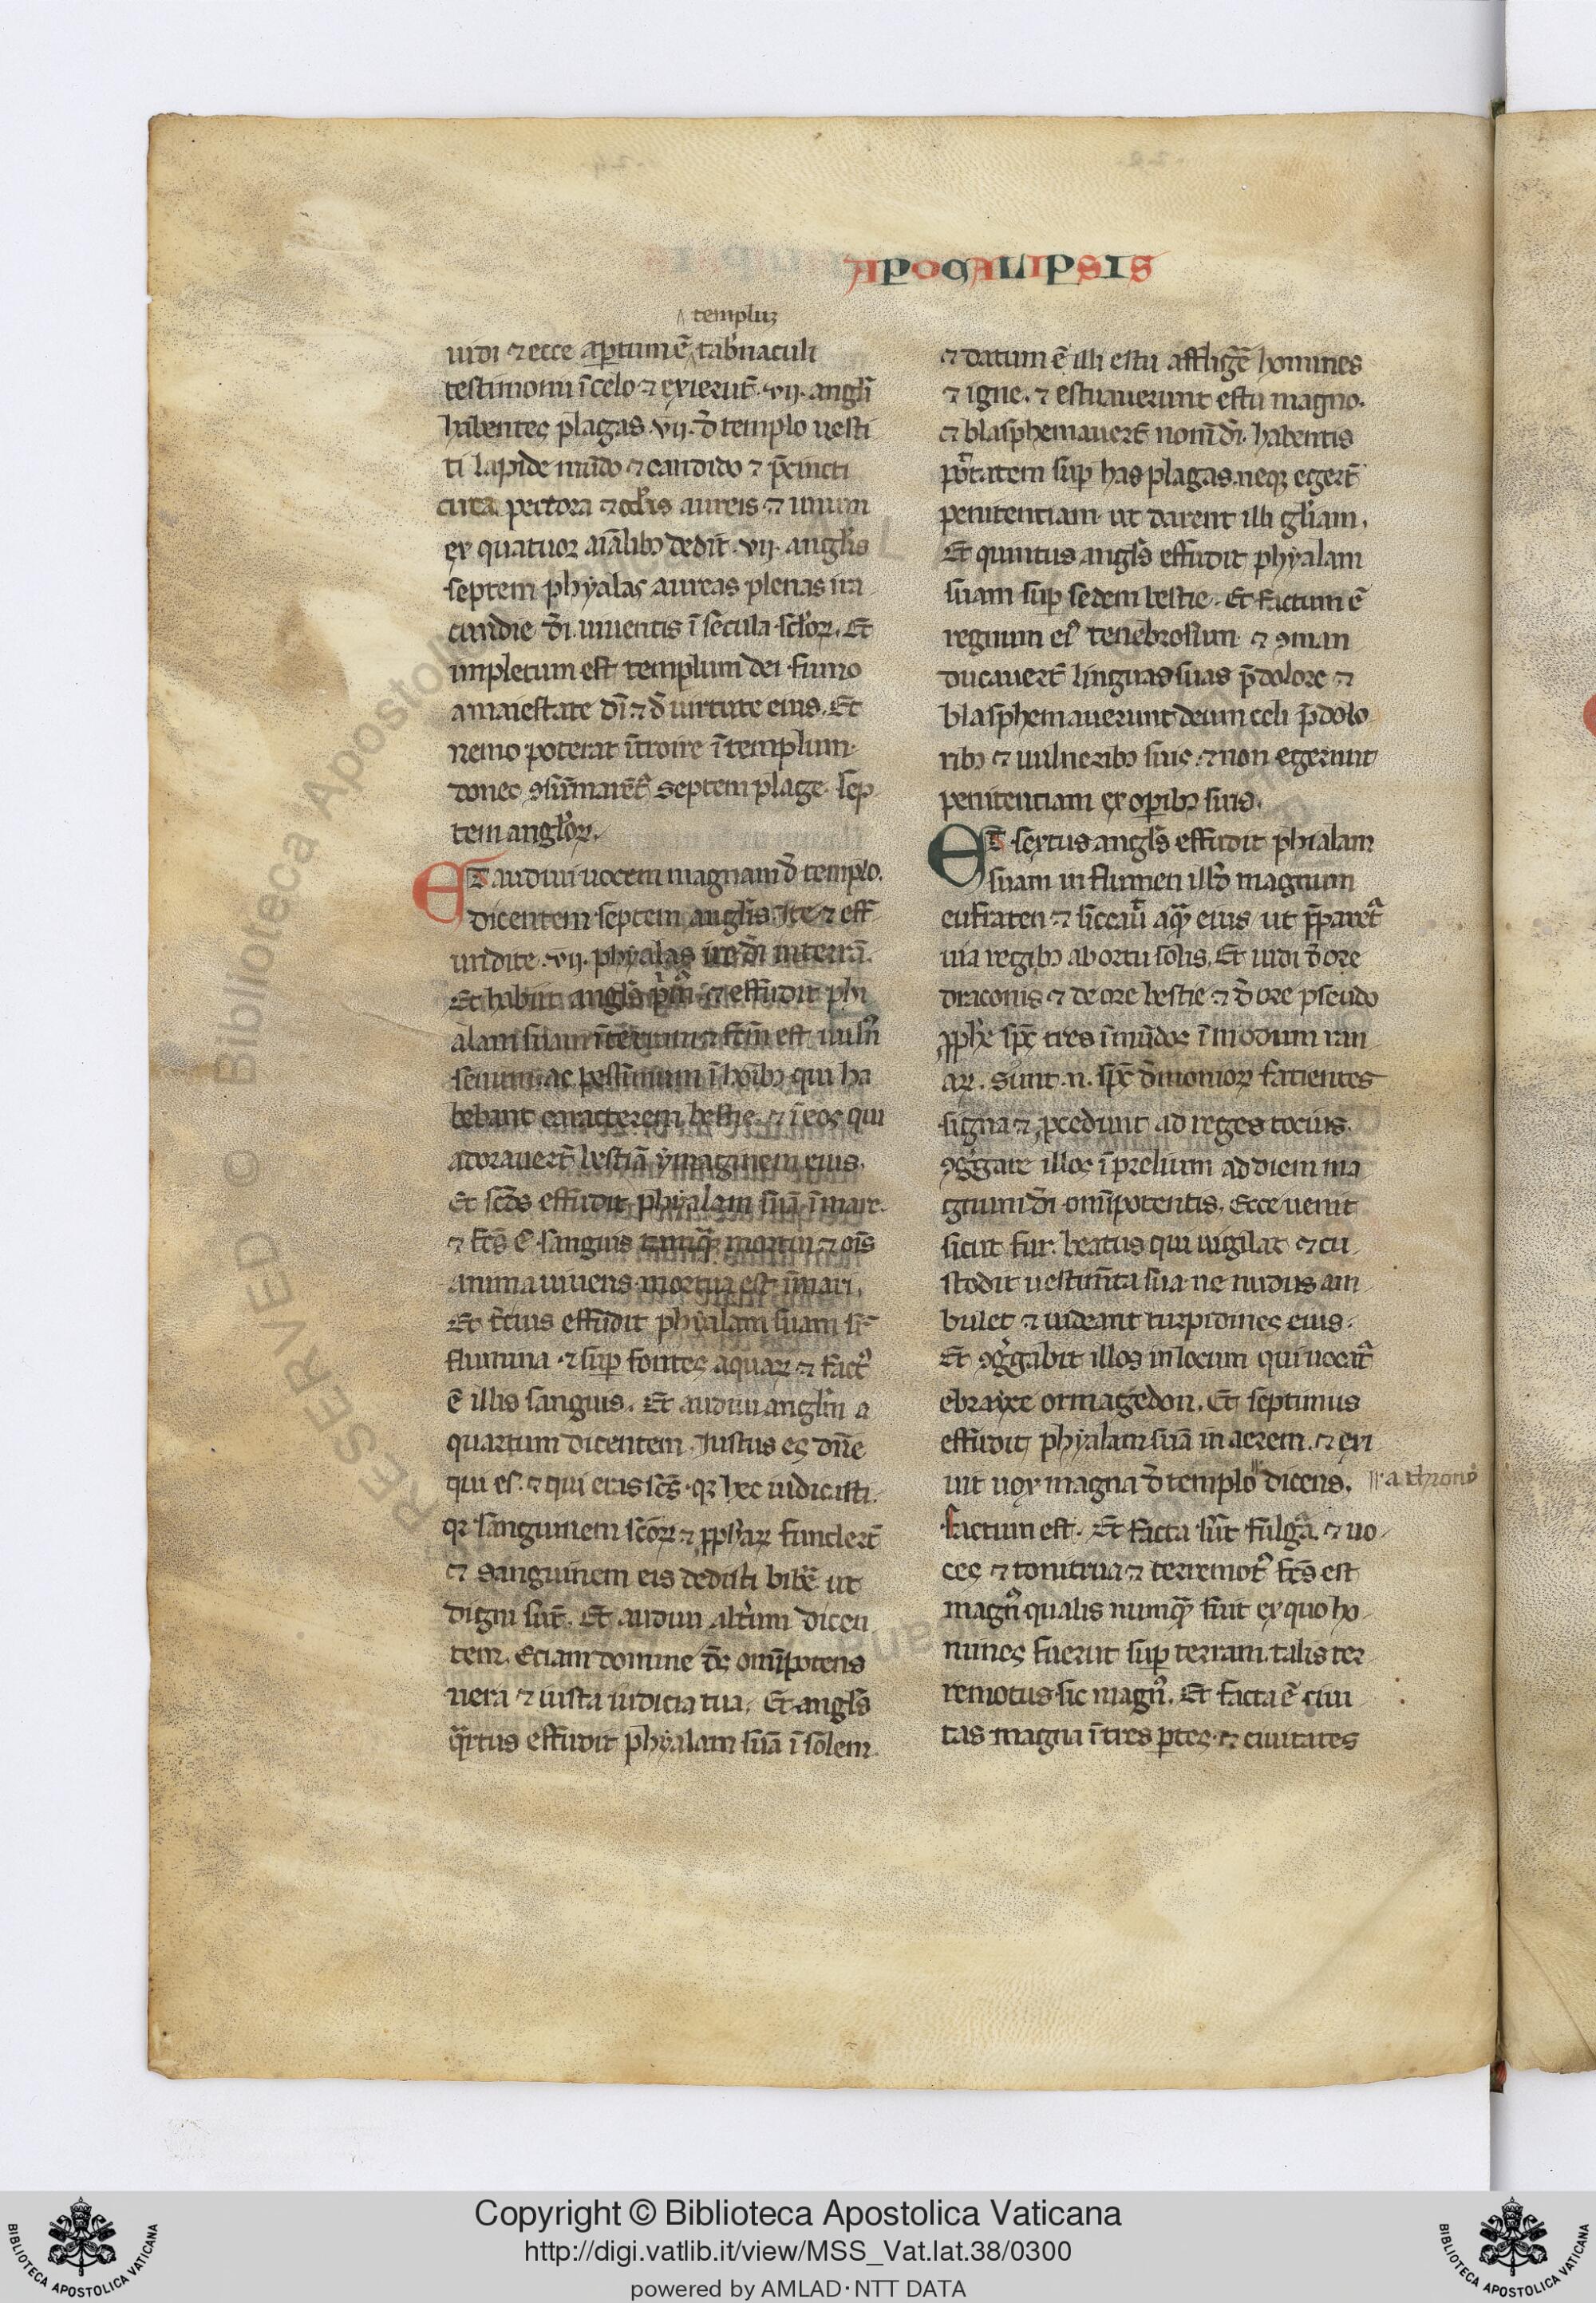 APOCALIPSIS
templuʒ
uidi ⁊ ecce aꝑtum ē tab̓naculi
testimonii ī celo ⁊ exierūt ·vij· angl̓i
habentes plagas ·vij· d̄ templo uesti
ti lapide mūdo ⁊ candido ⁊ p̄cincti
circa pectora ⁊ aureis ⁊ unum
ex quatuor aīalibꝫ dedit ·vij· angl̓is
septem phyalas aureas plenas ira
cundie dī uiuentis ī secula sc̓loꝝ. Et
impletum est templum dei fumo
a maiestate dī ⁊ d̄ uirtute eius. Et
nemo poterat ītroire ī templum·
donec ꝯsūmarēt᷑ septem plage sep
tem angl̓oꝝ.
ET audiui uocem magnam d̄ templo.
dicentem septem angl̓is. Ite ⁊ eff
undite ·vij· phyalas ire dī in terrā.
Et habiit angl̓s p̓m᷑ ⁊ effudit phi
alam suam ī terram ⁊ fc̄m est uuln᷒
seuum ac pessimum ī hoībꝫ qui ha
bebant caracterem bestie· ⁊ ī eos qui
adorauert̄ bestiā ymaginem eius.
Et sc̄ds effudit phyalam suā ī mare·
⁊ fc̄s ē sanguis tamꝗ̄ mortui ⁊ oīs
anima uiuens mortua est ī mari.
Et t̓cius effudit phyalam suam sr̄
flumina ⁊ suꝑ fontes aquaꝝ ⁊ fact᷒
ē illis sanguis. Et audiui angl̓m a
quartum dicentem. Iustus es dn̄e
qui es· ⁊ qui eras sc̄s· qꝛ hec iudicasti.
qꝛ sanguinem sc̄oꝝ ⁊ ꝓph̓aꝝ fundert̄
⁊ sanguinem eis dedisti bibē ut
digni sūt. Et audiui alt̓um dicen
tem. Eciam domine ds̄ omīpotens
uera ⁊ iusta iudicia tua. Et angl̓s
q̓rtus effudit phyalam suā ī solem
⁊ datum ē illi estu affligē homines
⁊ igne. ⁊ estuauerunt estu magno.
⁊ blasphemauert̄ nom̄ dī habentis
pot̄atem suꝑ has plagas. neqꝫ egert̄
penitentiam ut darent illi gl̓iam.
Et quintus angl̓s effudit phyalam
suam suꝑ sedem bestie. Et factum ē
regnum ei᷒ tenebrosum ⁊ ꝯman
ducauert̄ linguas suas p̄ dolore ⁊
blasphemauerunt deum celi p̄ dolo
ribꝫ ⁊ uulneribꝫ suis. ⁊ non egerunt
penitentiam ex oꝑibꝫ suis.
ET sextus angl̓s effudit phialam
suam in flumen ill᷒d magnum
eufraten ⁊ siccau̓ aqꝫ eius ut p̄ꝑaret᷑
uia regibꝫ ab ortu solis. Et uidi d̄ ore
draconis ⁊ de ore bestie ⁊ d̄ ore pseudo
ꝓphe sp̄c tres īmūdos ī modum ran
aꝝ. Sunt .n. sp̄c d̄monioꝝ facientes
signa ⁊ ꝓcedunt ad reges tocius.
ꝯg̓gare illos ī prelium ad diem ma
gnum dī omīpotentis. Ecce uenit
sicut fur. beatus qui uigilat ⁊ cu
stodit uestim̄ta sua ne nudus am
bulet ⁊ uideant turpidines eius.
Et ꝯg̓gabit illos in locum qui uocat᷑
ebrayce ormagedon. Et septimus
effudit phyalam suā in aerem. ⁊ exi
uit uox magna d̄ templo dicens.
a throno
factum est. Et facta sūt fulg̓a ⁊ uo
ces ⁊ tonitrua ⁊ terremot᷒ fc̄s est
magn᷒ qualis numꝗ̄ fuit ex quo ho
mines fuerūt suꝑ terram. talis ter
remotus sic magn᷒. Et facta ē ciui
tas magna ī tres ꝑtes· ⁊ ciuitates
Copyright © Biblioteca Apostolica Vaticana
http://digi.vatlib.it/view/MSS_Vat.lat.38/0300
powered by AMLAD·NTT DATA
BIBLIOTECA APOSTOLICA VATICANA
BIBLIOTECA APOSTOLICA VATICANA